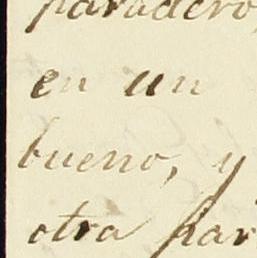 paradero,
en un
bueno, y
otra par